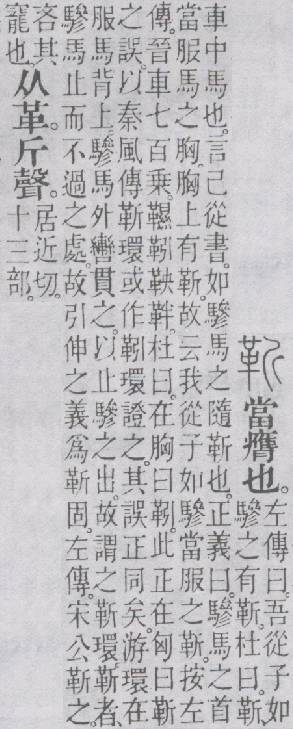 靳 當膺也。左傳曰。吾從子如
驂之有靳。杜曰。靳
車中馬也。言己從書。如驂馬之隨靳也。正義曰。驂馬之首
當服馬之胸。胸上有靳。故云我從子如驂當服之靳。按左
傳。晉車七百乘。韅靷鞅靽。杜曰。在胸曰靷。此正在匈曰靳
之誤。以秦風傳靳環或作靷環證之。其誤正同矣。游環在
服馬背上。驂馬外轡貫之。以止驂之出。故謂之靳環。靳者、
驂馬止而不過之處。故引伸之義爲靳固。左傳。宋公靳之。
吝其
寵也。
从革。斤聲。
居近切。
十三部。